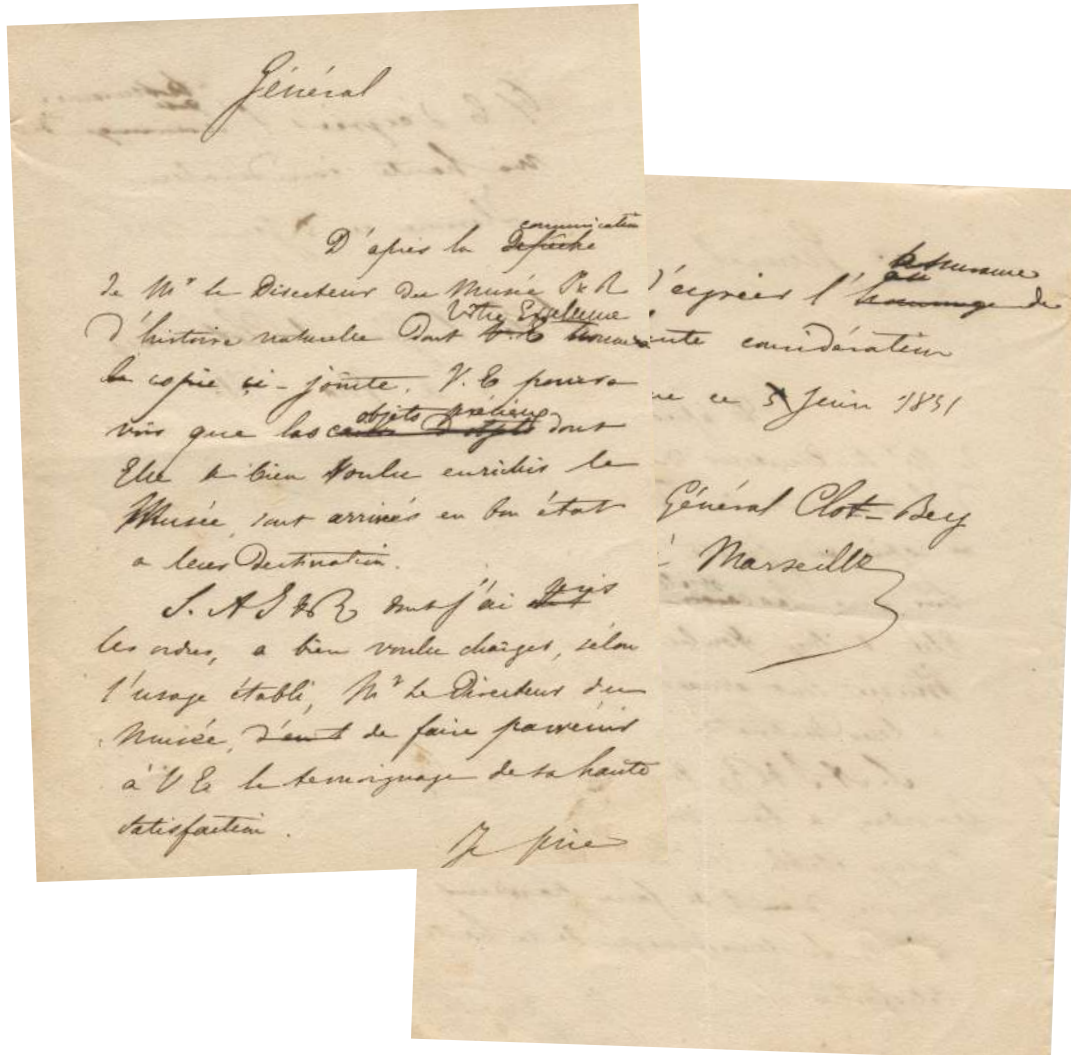 Général
D'après la communication Dépêche
de Mr le Directeur du Musée I & R
d'histoire naturelle dont V. E Votre Excellence
la copie ci-jointe. V. E pourra
voir que les caisses d'objets objets précieux dont
Elle a bien voulu enrichir le
Musée, sont arrivés en bon état
a leur Destination.
S. A I & R dont j'ai pris
les ordres, a bien voulu charger, selon
l'usage établi, Mr le Directeur du
Musée, de faire parvenir
à V E le temoignage de sa haute
satisfaction.
Je prie
d'agréer l'hommage de
considération
ce 5 Juin 1851
Général Clot-Bey
Marseille